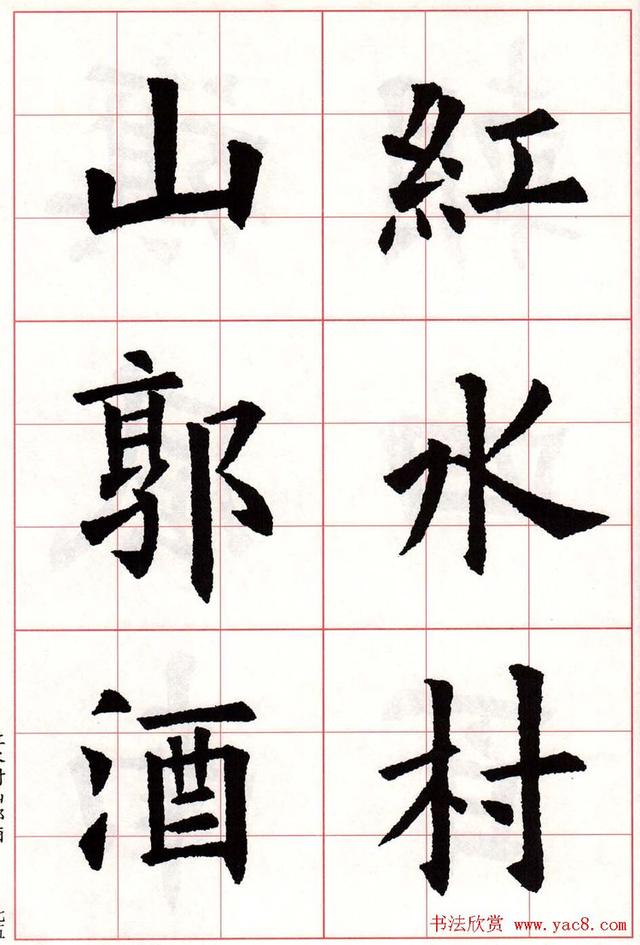 紅水村
山郭酒
书法欣赏 www.yac8.com